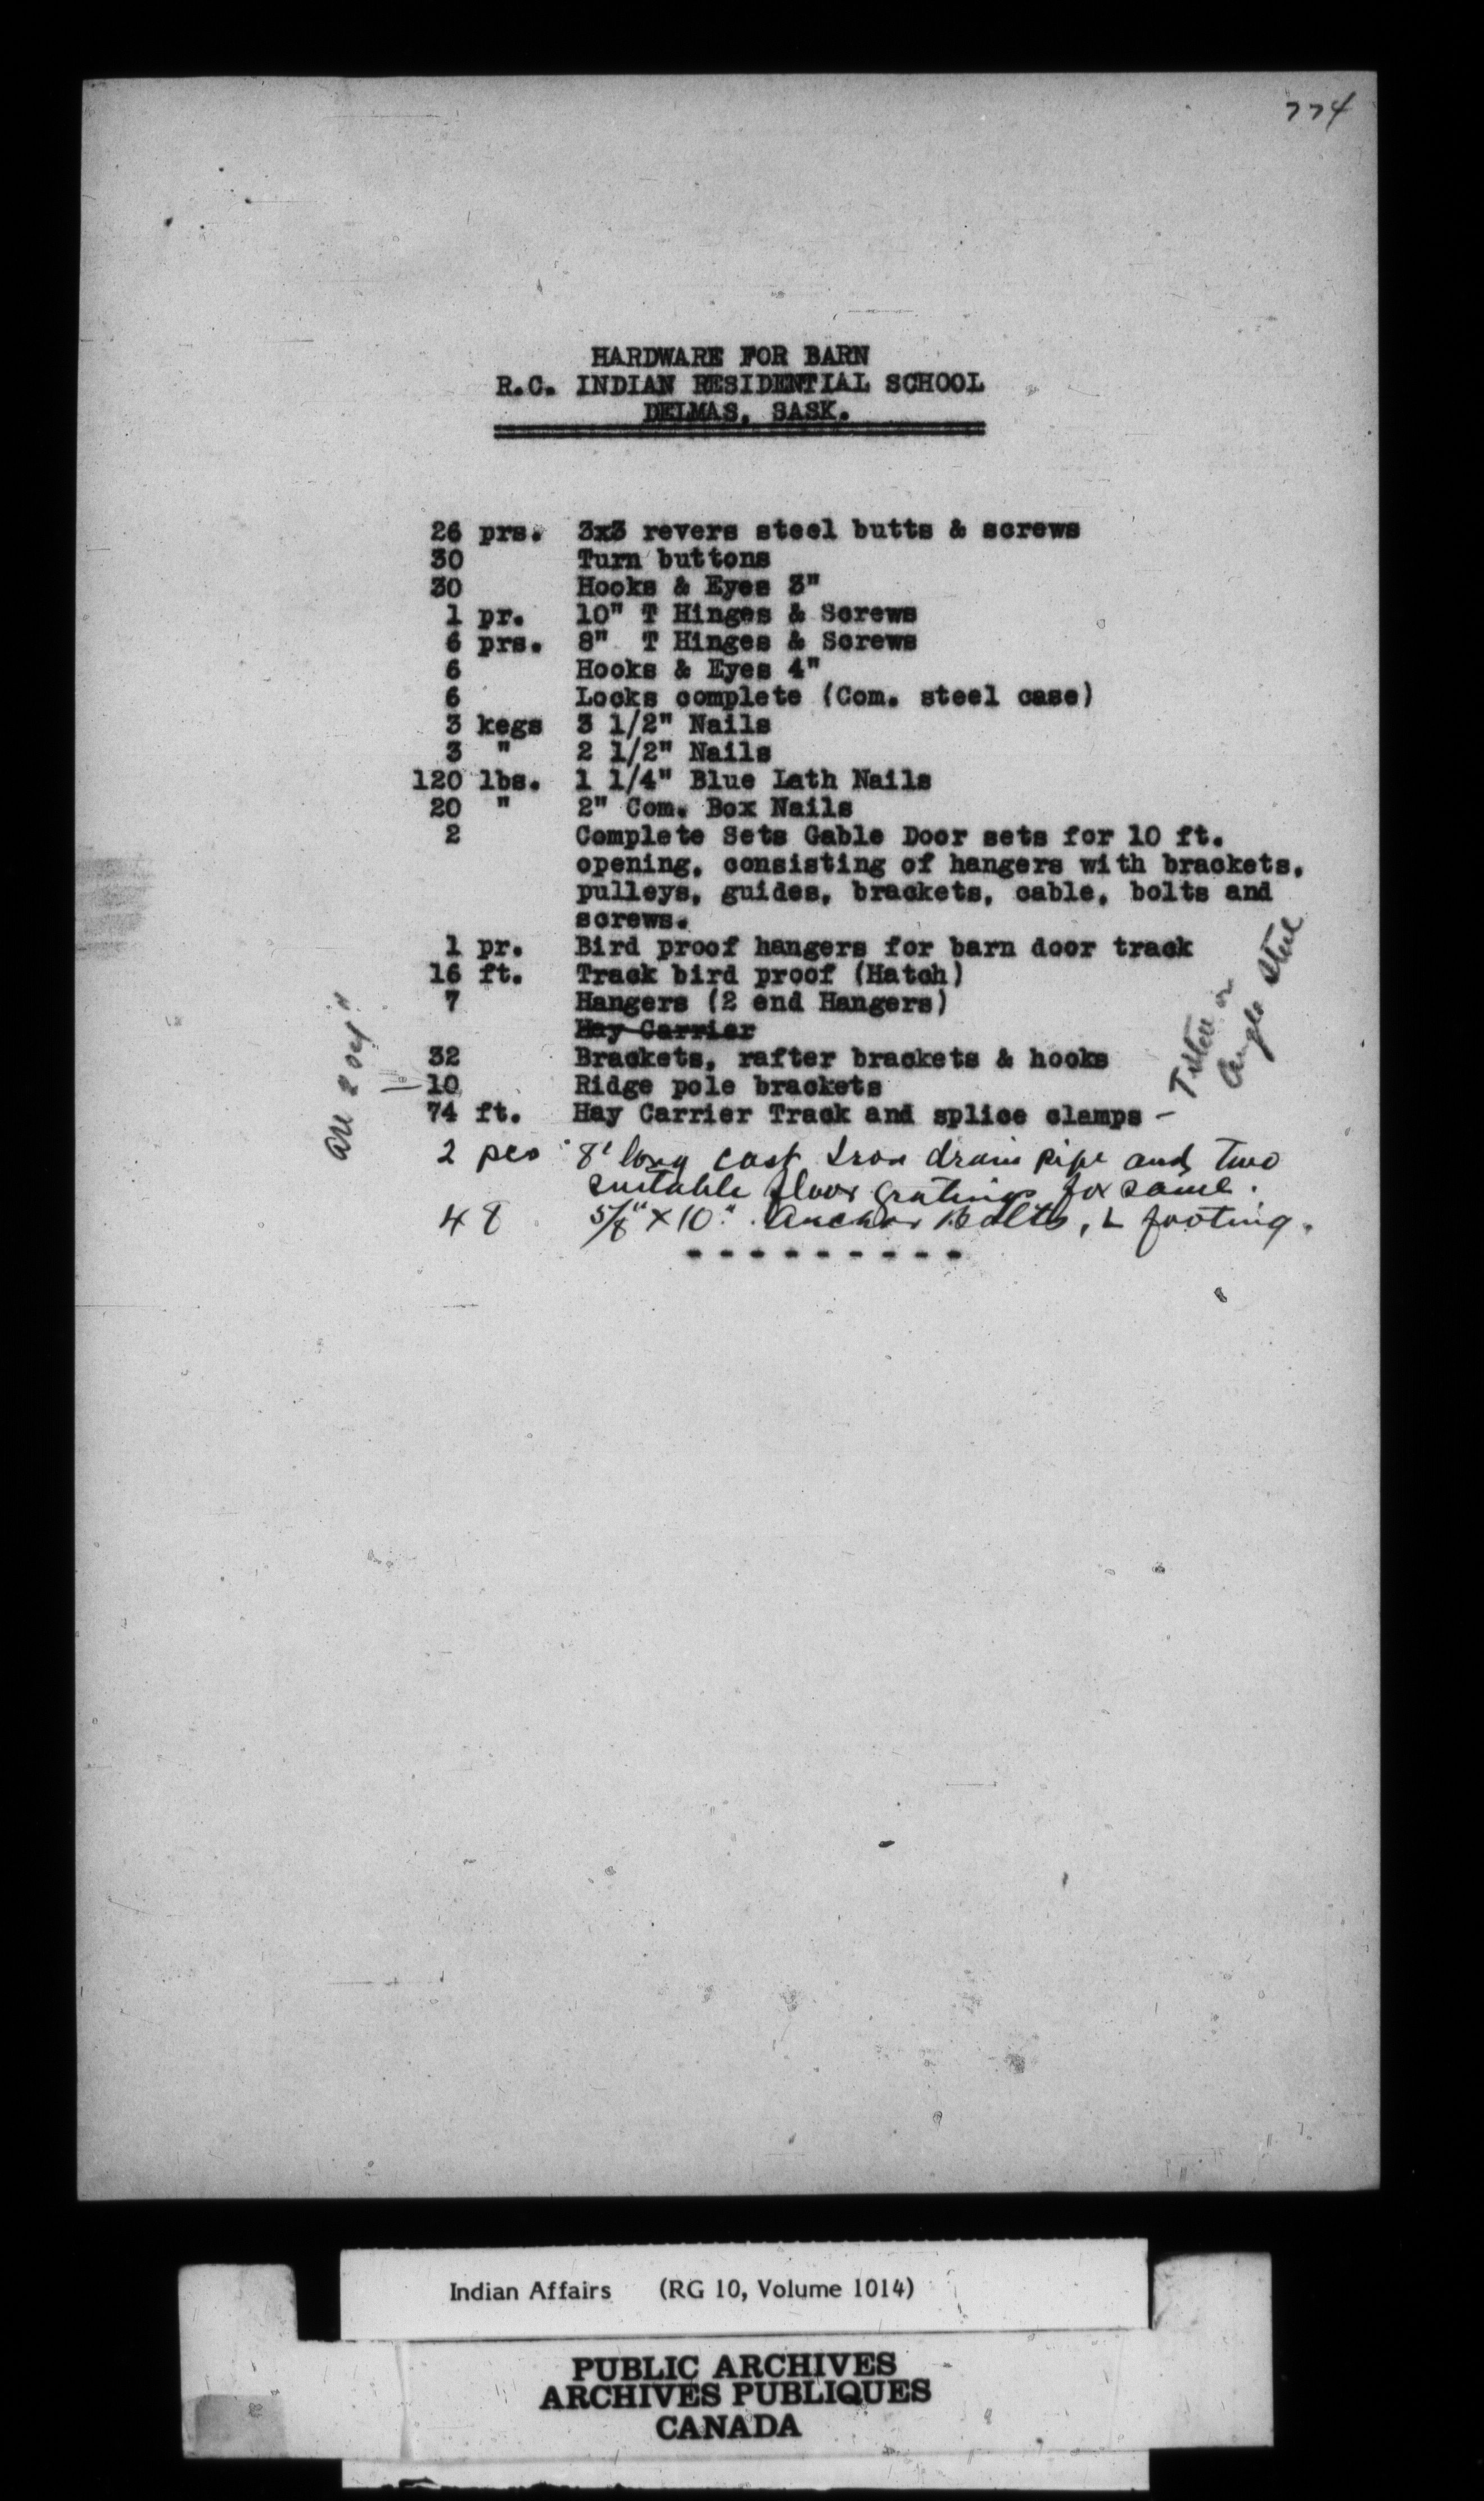 774
HARDWARE FOR BARN
R.C. INDIAN RESIDENTIAL SCHOOL
DELMAS, SASK.
26 prs. 3x3 revers steel butts & screws
30 Turn buttons
30 Hooks & Eyes 3"
1 pr. 10" T Hinges & Screws
6 prs. 8" T Hinges & Screws
6 Hooks & Eyes 4"
6 Locks complete (Com. steel case)
3 kegs 3 1/2" Nails
3 " 2 1/2" Nails
120 lbs. 1 1/4" Blue Lath Nails
20 " 2" Com. Box Nails
2 Complete Sets Gable Door sets for 10 ft.
opening, consisting of hangers with brackets,
pulleys, guides, brackets, cable, bolts and
screws.
1 pr. Bird proof hangers for barn door track
16 ft. Track bird proof (Hatch)
7 Hangers (2 end Hangers)
Hay Carrier
32 Brackets, rafter brackets & hooks
10 Ridge pole brackets
74 ft. Hay Carrier Track and splice clamps -
or
Angle Steel
2 pcs 8' long cast Iron drain pipe and two
suitable floor gratings for same.
48 5/8" x 10" Anchor Bolts, L footing.
Indian Affairs (RG 10, Volume 1014)
PUBLIC ARCHIVES
ARCHIVES PUBLIQUES
CANADA